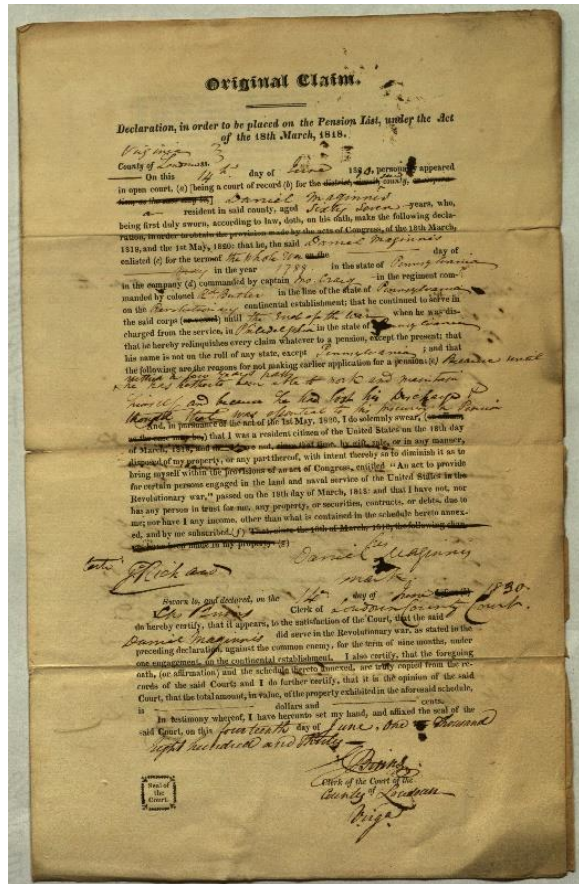 Original Claim.
Declaration, in order to be placed on the Pension List, under the Act
of the 18th March, 1818.
Virginia
County of Loudoun ss.
On this 14th day of June 1830, personally appeared
in open court, (a) [being a court of record (b) for the district, circuit, county,
Daniel Maginnis
a resident in said county, aged Sixty Seven years, who,
being first duly sworn, according to law, doth, on his oath, make the following decla-
ration, in order to obtain the provision made by the acts of Congress, of the 18th March,
1818, and the 1st May, 1820: that he, the said Daniel Maginnis
enlisted (c) for the term of the whole War on the day of
in the year in the state of Pennsylvania
in the company (d) commanded by captain Craig in the regiment com-
manded by colonel Butler in the line of the state of Pennsylvania
on the Revolutionary continental establishment; that he continued to serve in
the said corps until the End of the War when he was dis-
charged from the service, in Philadelphia in the state of Pennsylvania
that he hereby relinquishes every claim whatever to a pension, except the present; that
his name is not on the roll of any state, except Pennsylvania; and that
the following are reasons for not making earlier application for a pension: (e) Because until
within a few years past
he has heretofore been able to work and maintain
himself and because he had lost his Discharge
thought that was essential to the procuring a Pension
And, in pursuance of the act of the 1st May, 1820, I do solemnly swear,
that I was a resident citizen of the United States on the 18th day
of March, 1818, and not, since that time, by gift, sale, or in any manner,
disposed of my property, or any part thereof, with intent thereby so to diminish it as to
bring myself within the provisions of an act of Congress, entitled "An act to provide
for certain persons engaged in the land and naval service of the United States in the
Revolutionary war," passed on the 18th day of March, 1818: and that I have not, nor
has any person in trust for me, any property, or securities, contracts, or debts, due to
me; nor have I any income, other than what is contained in the schedule hereto annex-
ed, and by me subscribed. (f) That since the 18th of March, 1818, the following chan-
ges have been made in my property (g)
his
Daniel Maginnis
mark
Sworn to, and declared, on the 14 day of June 1830
Clerk of Loudoun County Court
do hereby certify, that it appears, to the satisfaction of the Court, that the said
Daniel Maginnis did serve in the Revolutionary war, as stated in the
preceding declaration, against the common enemy, for the term of nine months, under
one engagement, on the continental establishment. I also certify, that the foregoing
oath, (or affirmation) and the schedule thereto annexed, are truly copied from the re-
cords of the said Court: and I do further certify, that it is the opinion of the said
Court, that the total amount, in value, of the property exhibited in the aforesaid schedule,
is dollars and cents.
In testimony whereof, I have hereunto set my hand, and affixed the seal of the
said Court, on this fourteenth day of June, One Thousand
eight hundred and thirty
Binns
Clerk of the Court of the
County of Loudoun
Virga
Seal of
the
Court.